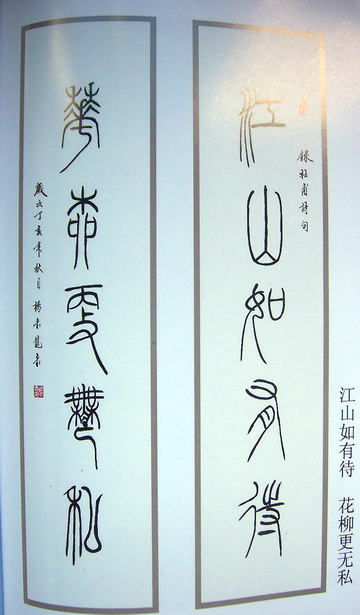 江山如有待　花柳更无私
錄杜甫詩句
江山如有待
華柳更無私
歲次丁亥年秋月楊龍書